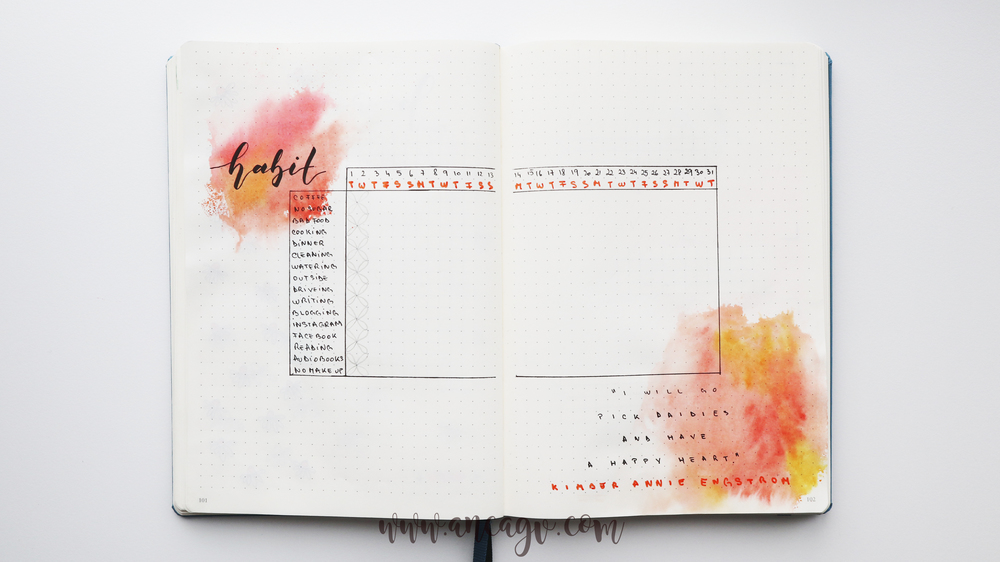 habit
1 2 3 4 5 6 7 8 9 10 11 12 13
T W T F S S M T W T F S S
COFFEE
NO SUGAR
BAD FOOD
COOKING
DINNER
CLEANING
WATERING
OUTSIDE
DRIVEING
WRITING
BLOGGING
INSTAGRAM
FACEBOOK
READING
AUDIOBOOKS
NO MAKE UP
14 15 16 17 18 19 20 21 22 23 24 25 26 27 28 29 30 31
M T W T F S S M T W T F S S M T W T
"I WILL GO
PICK DAIDIES
AND HAVE
A HAPPY HEART."
KIMBER ANNIE ENGSTROM
102
www.ancagv.com